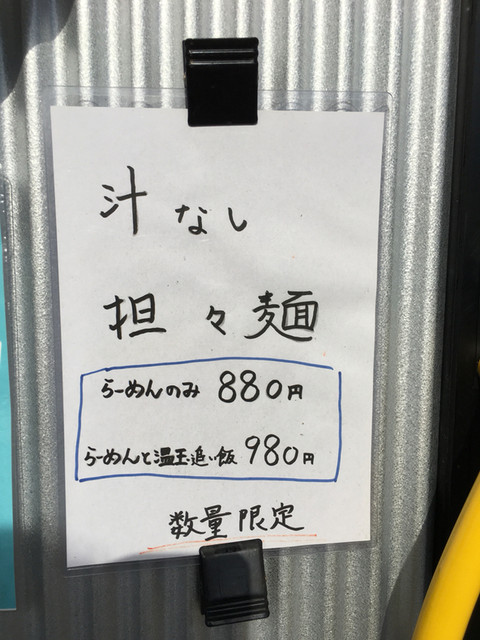 汁なし
担々麺
らーめんのみ 880円
らーめんと温玉追い飯 980円
数量限定